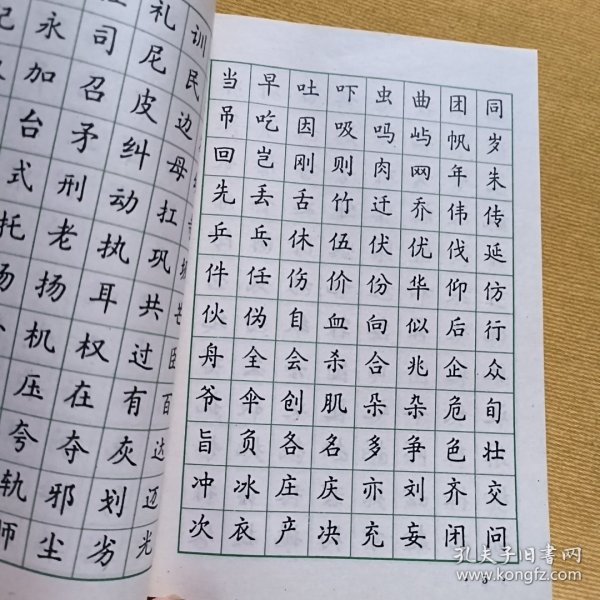 礼 训
永 司 尼 民
加 召 皮 边
台 矛 纠 母
式 刑 动 扛
托 老 执 巩
扬 耳 共
机 权 过 臣
压 在 有 百
夸 夺 灰 达
轨 邪 划 迈
师 尘 劣 光
当 早 吐 吓 虫 曲 团 同
吊 吃 因 吸 吗 屿 帆 岁
回 岂 刚 则 肉 网 年 朱
先 丢 舌 竹 迁 乔 伟 传
乒 乓 休 伍 伏 优 伐 延
件 任 伤 价 份 华 仰 仿
伙 伪 自 血 向 似 后 行
舟 全 会 杀 合 兆 企 众
爷 伞 创 肌 朵 杂 危 旬
旨 负 各 名 多 争 色 壮
冲 冰 庄 庆 亦 刘 齐 交
次 衣 产 决 充 妄 闭 问
孔夫子旧书网
www.kongfz.com